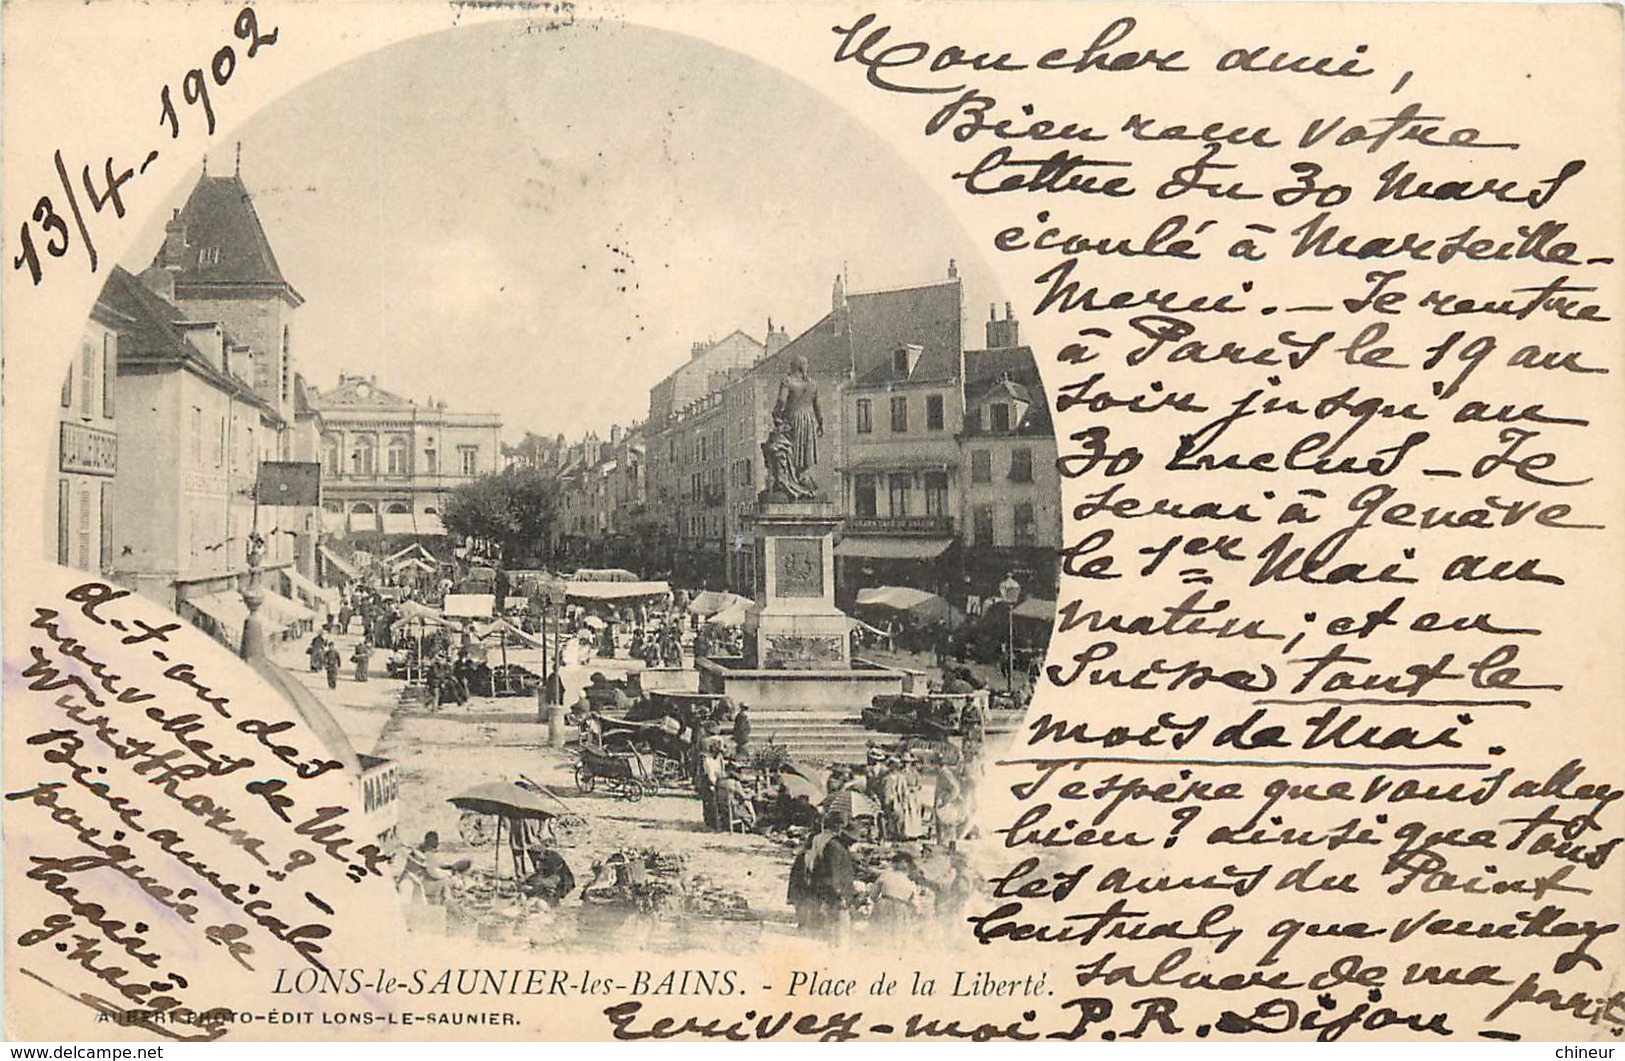 13/4-1902
Mon cher ami,
Bien reçu votre
lettre du 30 Mars
écoulé à Marseille-
Merci. - Je rentre
à Paris le 19 au
soir jusqu'au
30 inclus - Je
serai à Genève
le 1er Mai au
matin; et en
Suisse tout le
mois de Mai.
J'espère que vous allez
bien? ainsi que tous
les amis du Point
Central, que veuillez
saluer de ma part.
Ecrivez-moi P.R. Dijon -
a-t-on des
nouvelles de Ma
Würsthorn? -
Bien amicale
poignée de
main -
MAGGI
LONS-le-SAUNIER-les-BAINS. - Place de la Liberté.
AUBERT PHOTO-ÉDIT LONS-LE-SAUNIER.
chineur